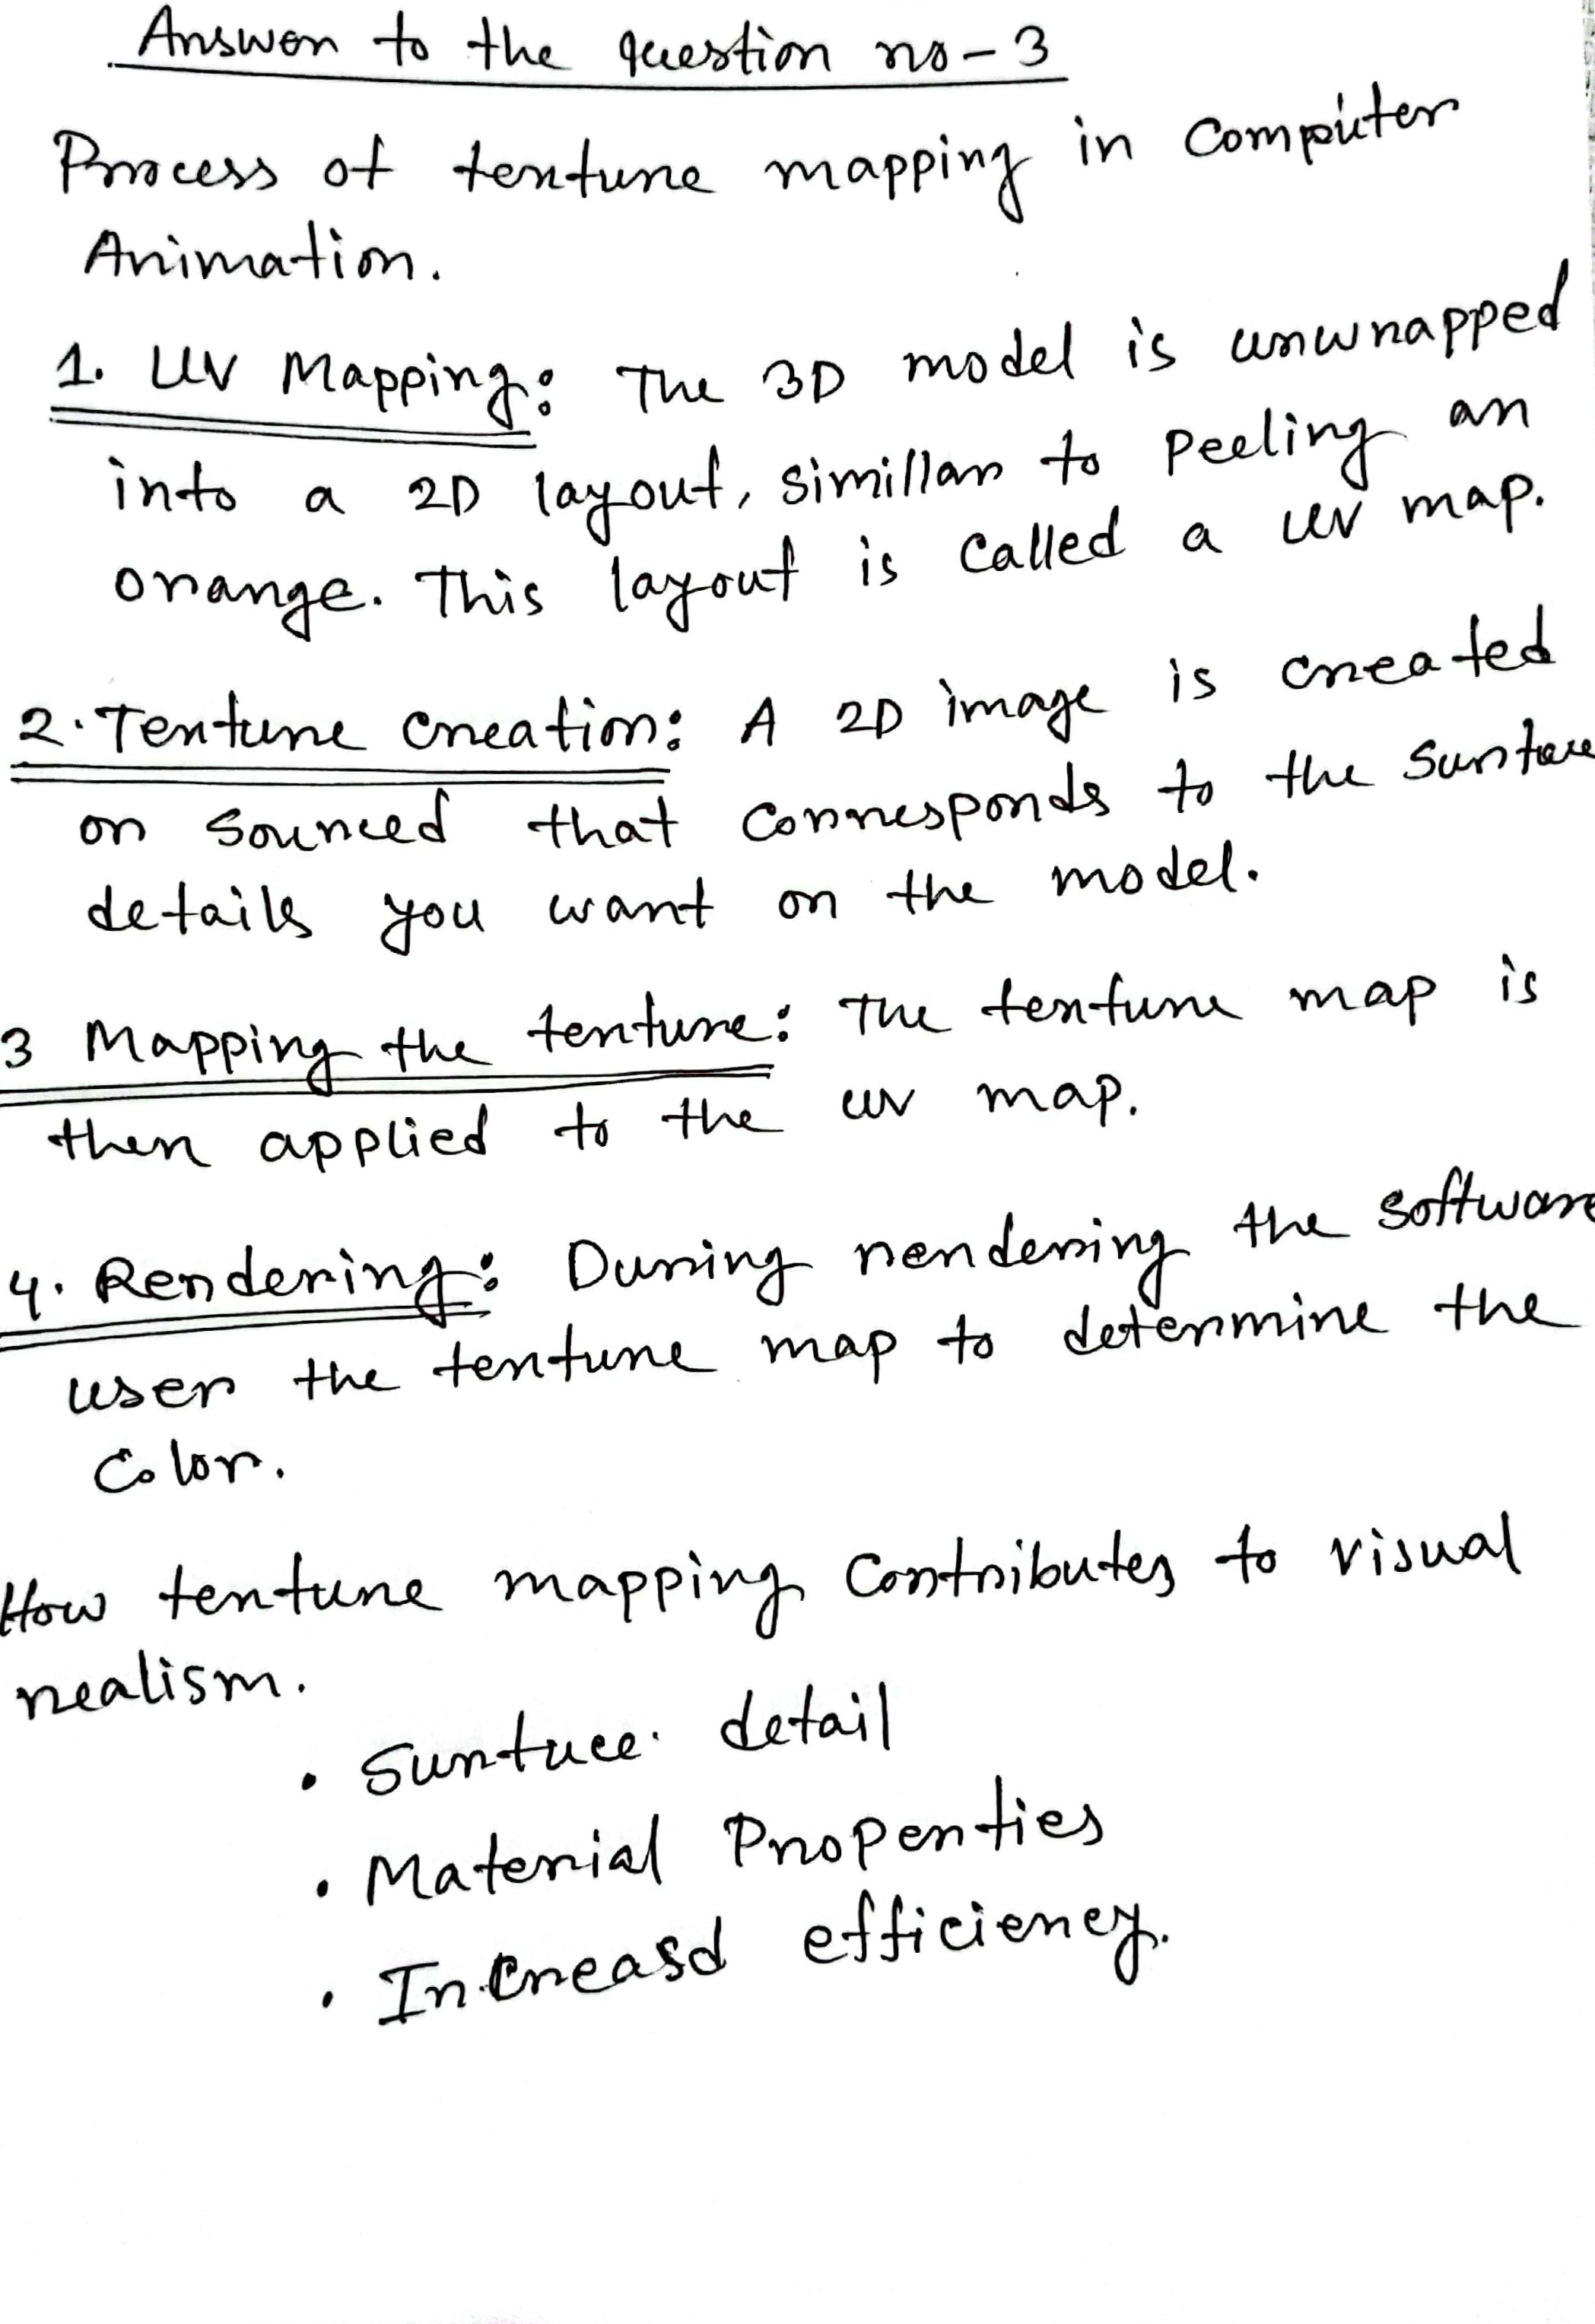 Answer to the question no-3
Process of texture mapping in Computer
Animation.
1. UV Mapping: The 3D model is unwrapped
into a 2D layout, simillar to Peeling an
orange. This layout is called a UV map.
2. Texture creation: A 2D image is created
or sourced that corresponds to the surface
details you want on the model.
3 Mapping the texture: The texture map is
then applied to the UV map.
4. Rendering: During rendering the software
user the texture map to determine the
Color.
How texture mapping Contributes to visual
realism.
• Surface detail
• Material Properties
• Increasd efficiency.